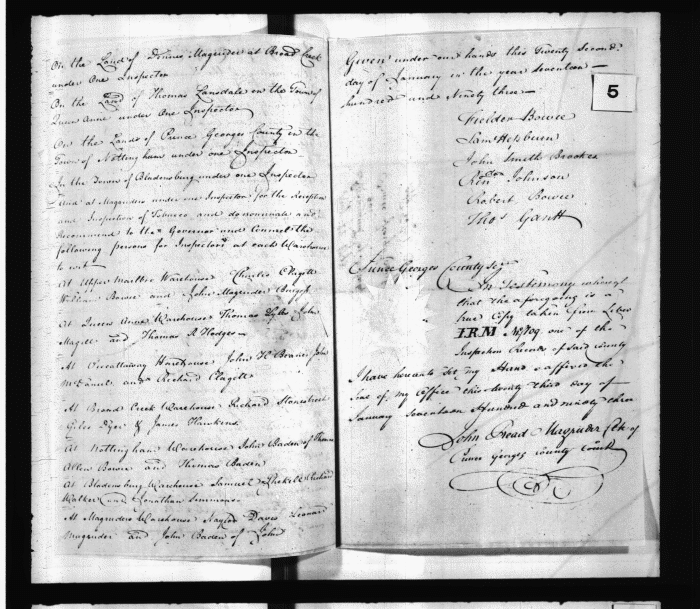 On the Land of Dennis Magruder at Broad Creek
under One Inspector
On the Land of Thomas Lansdale in the Town of
Queen Anne under One Inspector
On the Lands of Prince Georges County in the
Town of Nottingham under one Inspector
In the Town of Bladensburg under one Inspector
And at Magruders under one Inspector for the Reception
and Inspection of Tobacco and do nominate and
Recommend to the Governor and Council the
following persons for Inspectors at each Warehouse
to wit
At Upper Marlbro Warehouse Charles Clagett
William Bowie and John Magruder Burgess
At Queen Anne Warehouse Thomas John
Magill and Thomas R Hodges
At Piscattaway Warehouse John H Beanes John
McDaniel and Richard Clagett
At Broad Creek Warehouse Richard Stonestreet
Giles Dyer & James Hawkins
At Nottingham Warehouse John Baden of Thomas
Allen Bowie and Thomas Baden
At Bladensburg Warehouse Samuel Richard
Walker and Jonathan Simmons
At Magruders Warehouse Naylor Davis Leonard
Magruder and John Baden of John
Given under our hands this Twenty Second
day of January in the year seventeen
hundred and Ninety three
5
Fielder Bowie
Saml Hepburn
John Smith Brookes
Rinoldo Johnson
Robert Bowie
Thos Gantt
Prince Georges County Sct
In Testimony whereof
that the aforegoing is a
true Copy taken from Liber
IRM No one of the
Inspection Records of said County
I have hereunto Set my Hand & affixed the
Seal of my Office this twenty third day of
January seventeen Hundred and ninety three
John Read Magruder Clk of
Prince Georges County Court